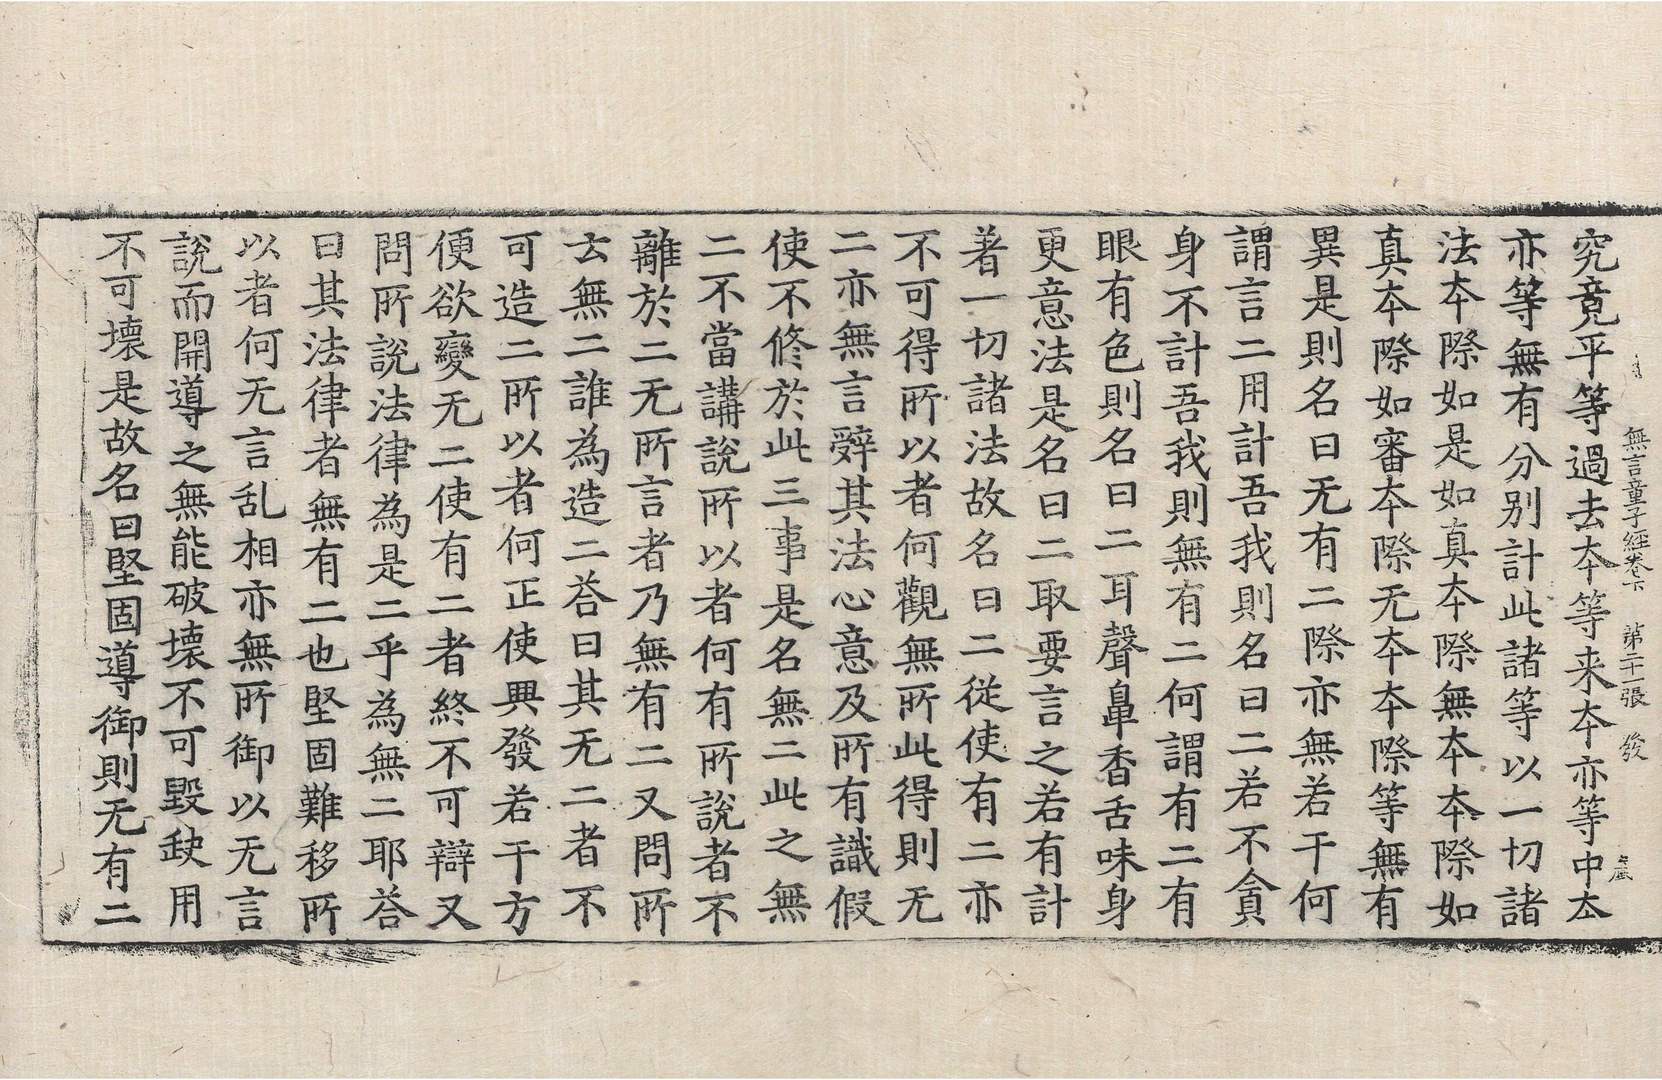 無言童子經卷下 第二十一張 發
究竟平等過去夲等来夲亦等中夲
亦等無有分别計此諸等以一切諸
法夲際如是如真夲際無夲夲際如
真夲際如審夲際无夲夲際等無有
異是則名曰无有二際亦無若干何
謂言二用計吾我則名曰二若不貪
身不計吾我則無有二何謂有二有
眼有色則名曰二耳聲鼻香舌味身
更意法是名曰二取要言之若有計
著一切諸法故名曰二従使有二亦
不可得所以者何觀無所此得則无
二亦無言辤其法心意及所有識假
使不修於此三事是名無二此之無
二不當講說所以者何有所說者不
離於二无所言者乃無有二又問所
云無二誰為造二荅曰其无二者不
可造二所以者何正使興發若干方
便欲變无二使有二者終不可辯又
問所說法律為是二乎為無二耶荅
曰其法律者無有二也堅固難移所
以者何无言乱相亦無所御以无言
說而開導之無能破壊不可毀缺用
不可壊是故名曰堅固導御則无有二